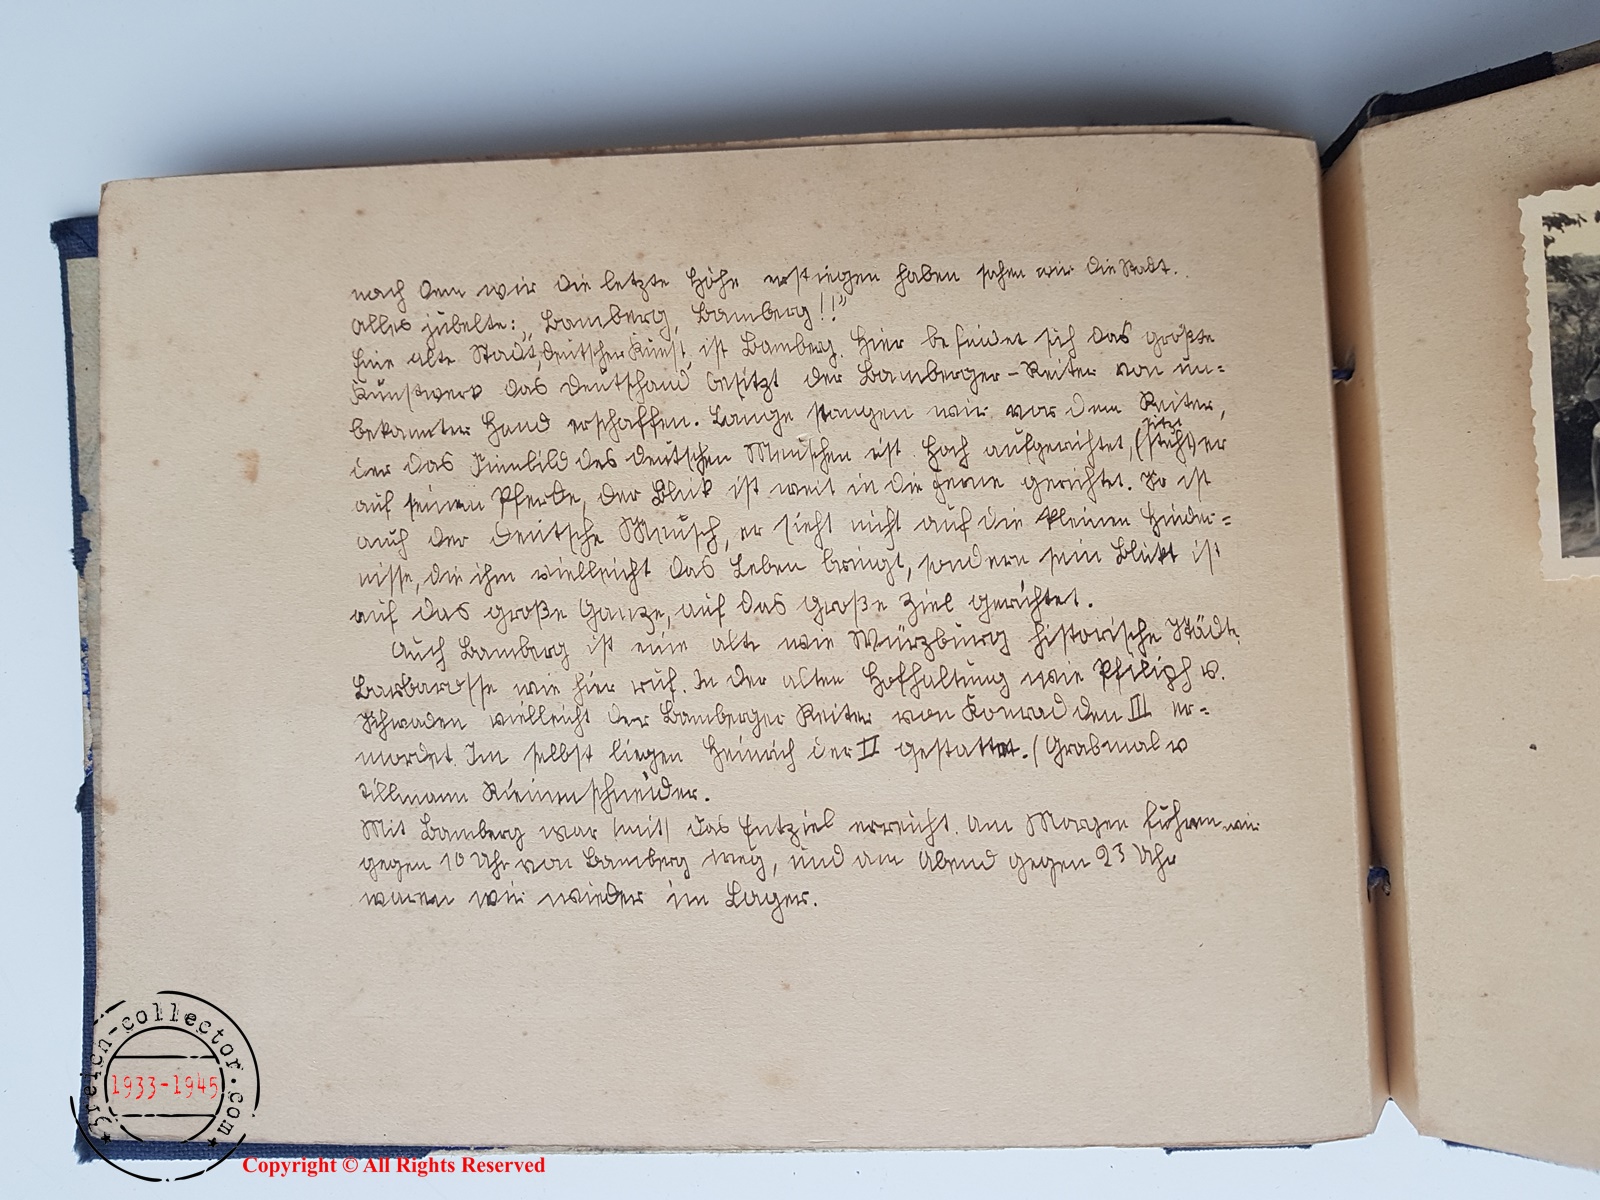 nach dem wir die letzte Höhe erstiegen haben sahen wir die Stadt.
Alles jubelte: „Bamberg, Bamberg!!"
Eine alte Stadt, deutscher Kunst, ist Bamberg. Hier befindet sich das größte
Kunstwerk das Deutschand besitzt der Bamberger-Reiter von un=
bekannter Hand erschaffen. Lange stangen wir vor dem Reiter,
der das Sinnbild des deutschen Menschen ist. Hoch aufgerichtet, (steht) er
sitzt
auf seinen Pferde, der Blick ist weit in die Ferne gerichtet. So ist
auch der Deutsche Mensch, er sieht nicht auf die kleinen Hinder=
nisse, die ihm vielleicht das Leben bringt, sondern sein Blickt ist
auf das große Ganze, auf das große Ziel gerichtet.
Auch Bamberg ist eine alte wie Würzburg historische Städt.
Barbarosse wie hier ruf. In der alten Hofhaltung wie Philiph v.
Schwaden vielleicht der Bamberger Reiter von Konrad den III er=
mordet. Im selbst liegen Heinrich der II gestattet. (Grabmal v
Tillmann Riemenschneider.
Mit Bamberg war (mit) das Entziel erreicht. Am Morgen fuhren wir
gegen 10 Uhr von Bamberg weg, und am Abend gegen 23 Uhr
waren wir wieder im Lager.
3reich-collector.com
1933-1945
Copyright © All Rights Reserved